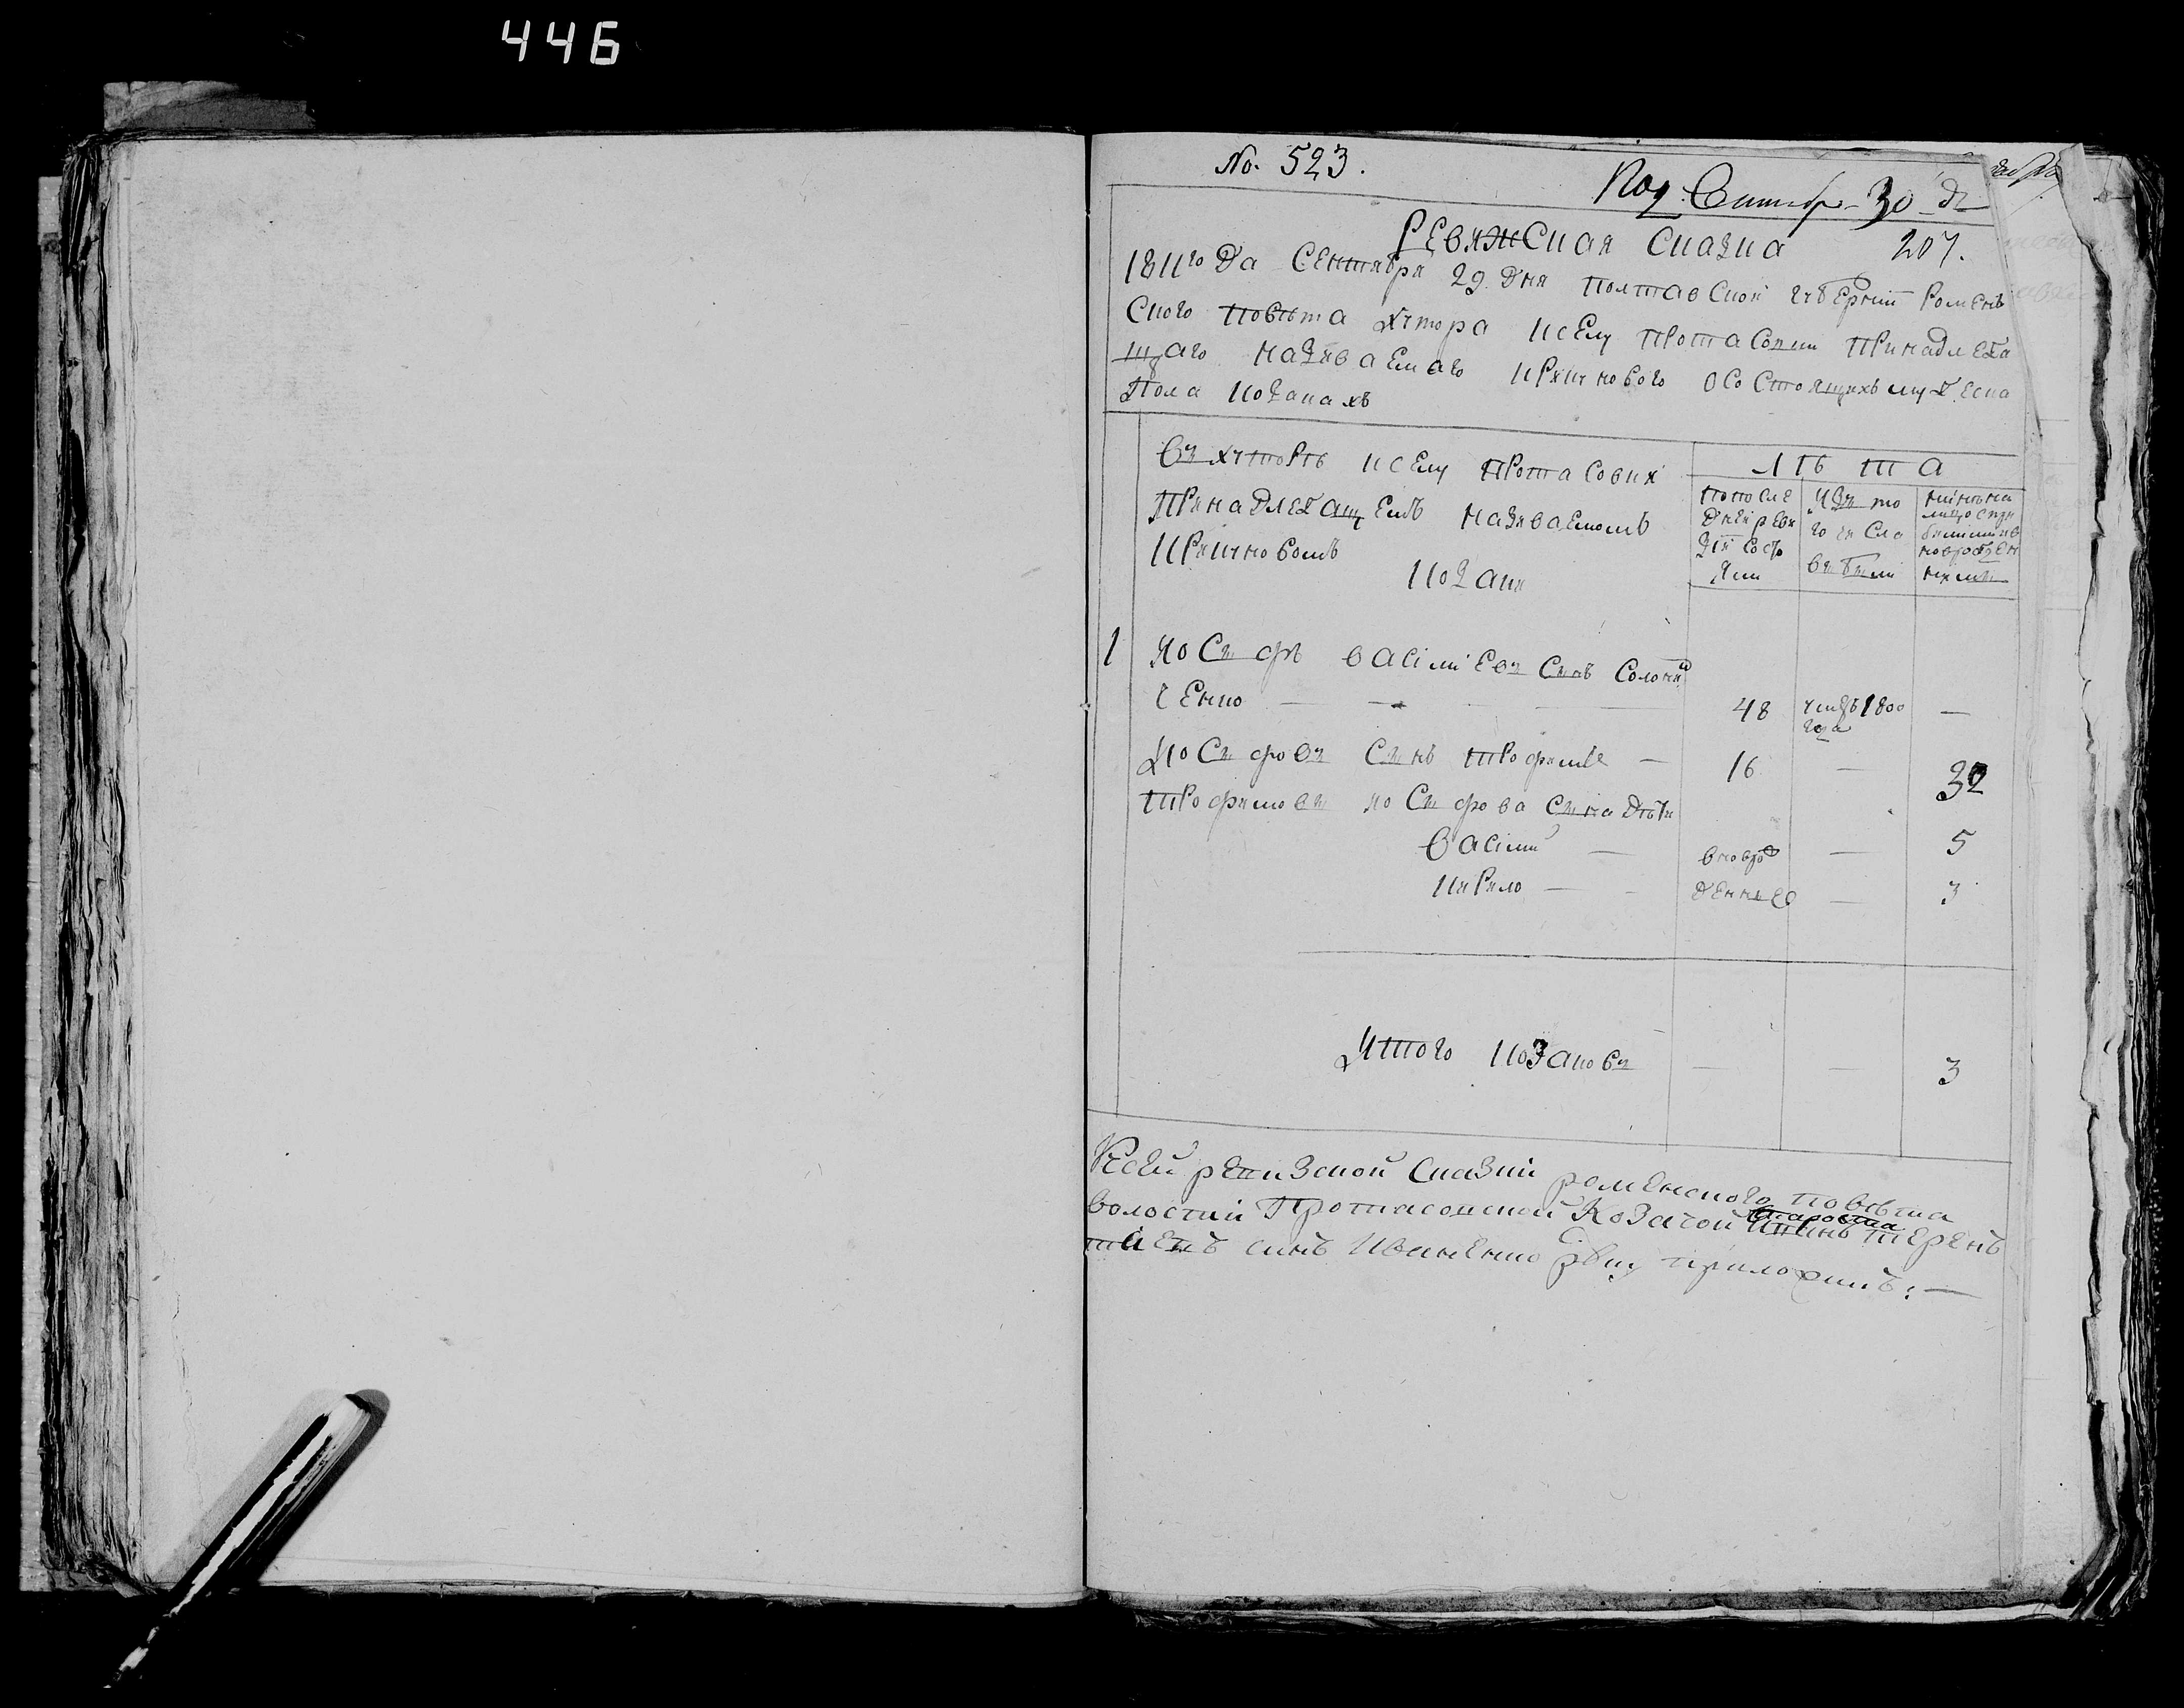 446
No. 523.
Под. Сентябр. 30 д
Ревижская сказка 207.
1811 года Сентября 29 дня полтавской губерніи Роменъ
ского повѣта хутора к селу протасовки принадлежа
щаго називаемаго Кричкового о состоящихъ мужеска
пола козакахъ
Въ хуторѣ к селу протасовки
принадлежащемъ називаемомъ
Кричковомъ
козаки
лѣта
по после
дней реви
зіи состо
яли
Изъ то
го числа
выбыли
нинѣ на
лицо
новорожден
ними
1 Иосыфъ васілиевъ сынъ Солони
ченко — 48 умръ 1800 —
года
Иосыфовъ сынъ трофимъ — 16 — 32
трофимовы иосыфова сына дѣти
васілий — новорож — 5
кирило — денние — 3
Итого козаковъ — — 3
К сей ревизской сказки роменского повѣта
волости Протасовской козачой старостa терень
тій сынъ Иваненко руку приложилъ: —